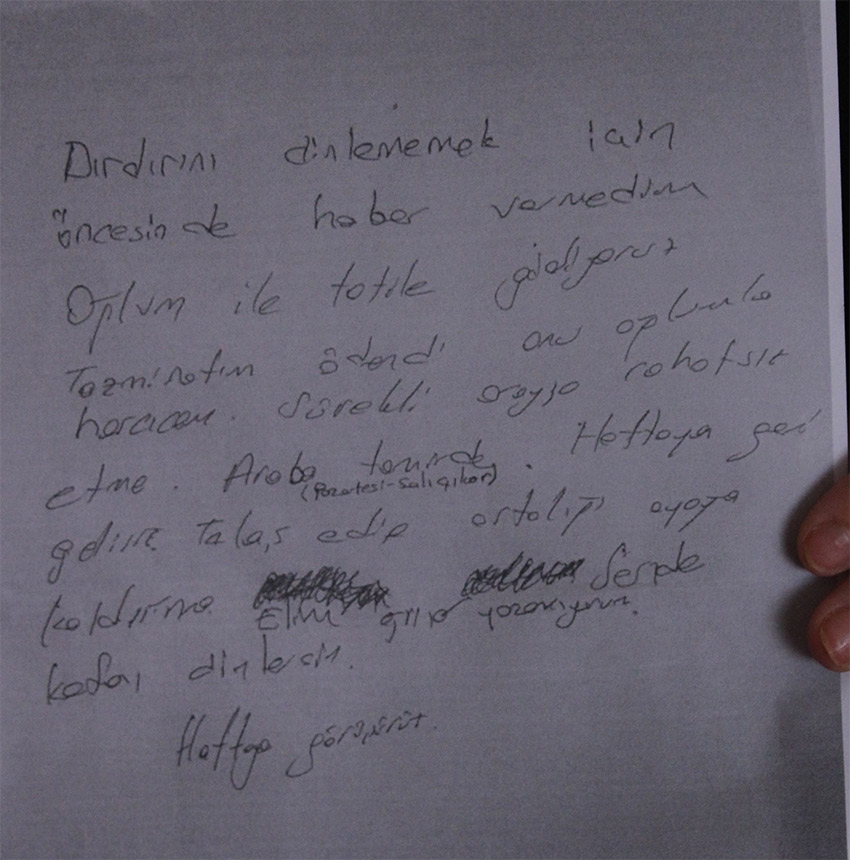 Dırdırını dinlememek için
öncesinde haber vermedim
Oğlum ile tatile gidiyoruz
Tazminatım ödendi onu oğlumla
harcıcam. Sürekli arayıp rahatsız
etme. Araba tamirde. Haftaya geri
(Pazartesi-Salı çıkar)
geliriz. Telaş edip ortalığı ayağa
kaldırma Sende
Elim ağrıyor yazamıyorum.
kafanı dinlersin.
Haftaya görüşürüz.